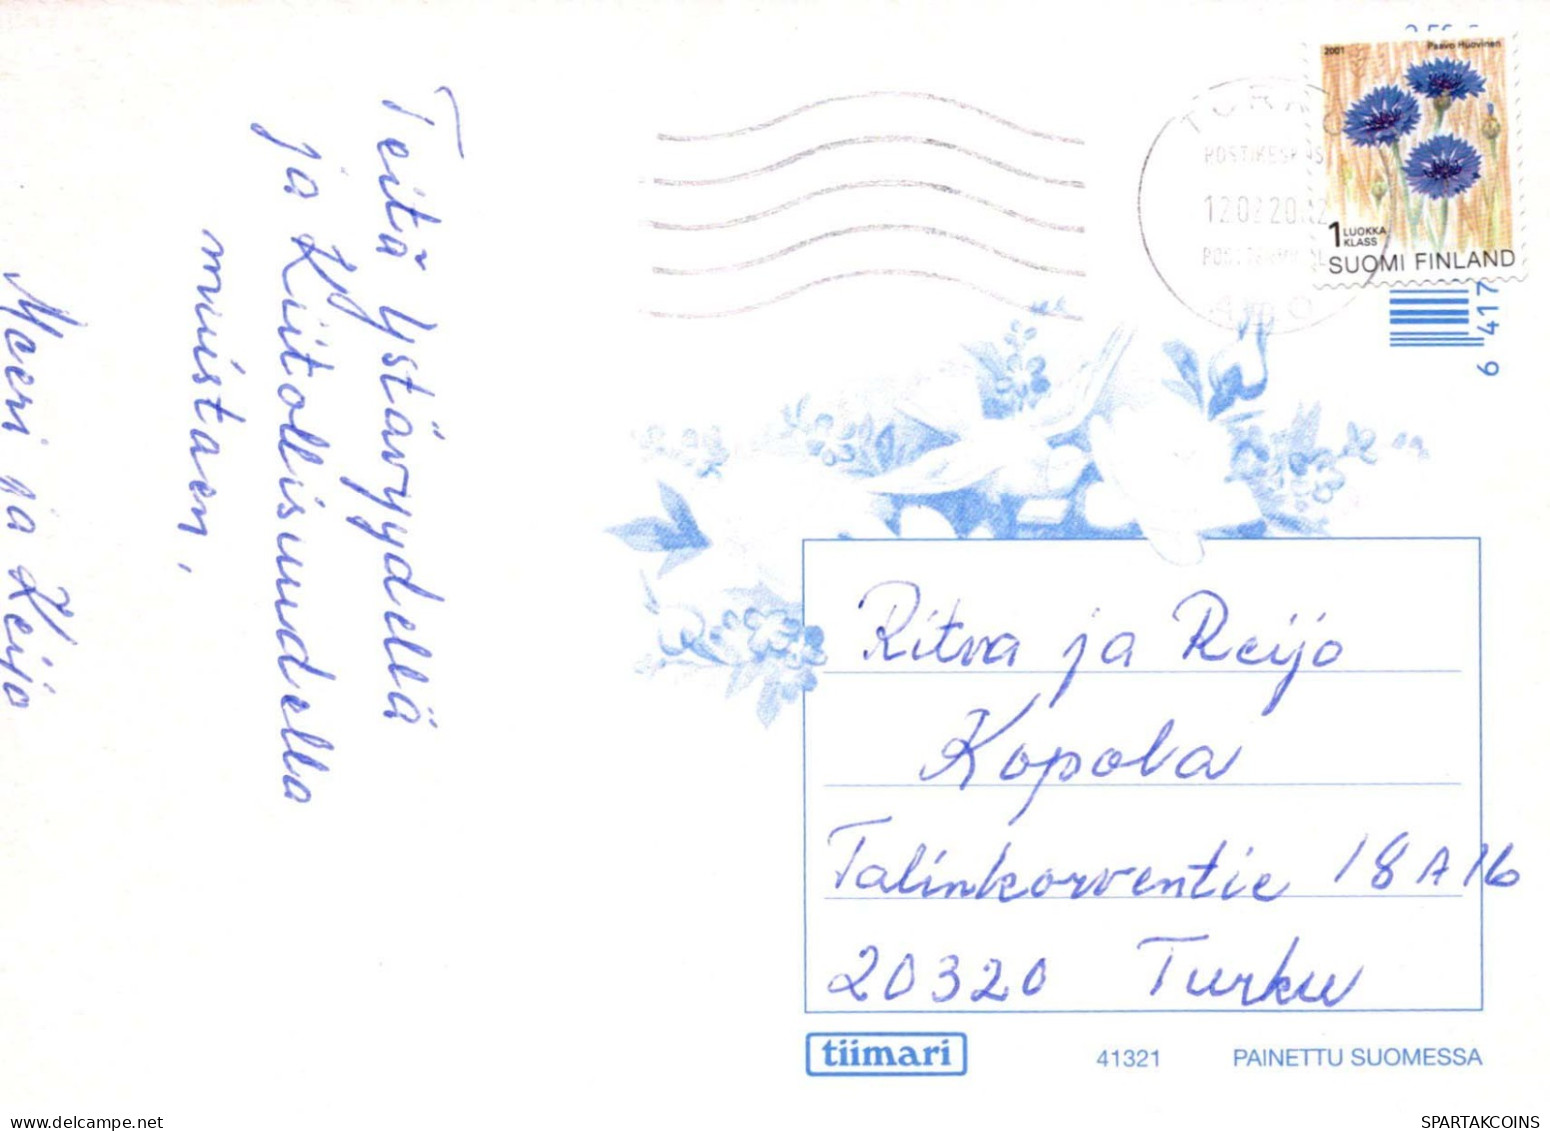 Teitä Ystävyydellä
ja Kiitollisuudella
muistaen,
Meeri ja Keijo
2001 Paavo Huovinen
1 LUOKKA
KLASS
SUOMI FINLAND
6 417
Ritva ja Reijo
Kopola
Talinkorventie 18 A 16
20320 Turku
tiimari
41321
PAINETTU SUOMESSA
www.delcampe.net
SPARTAKCOINS